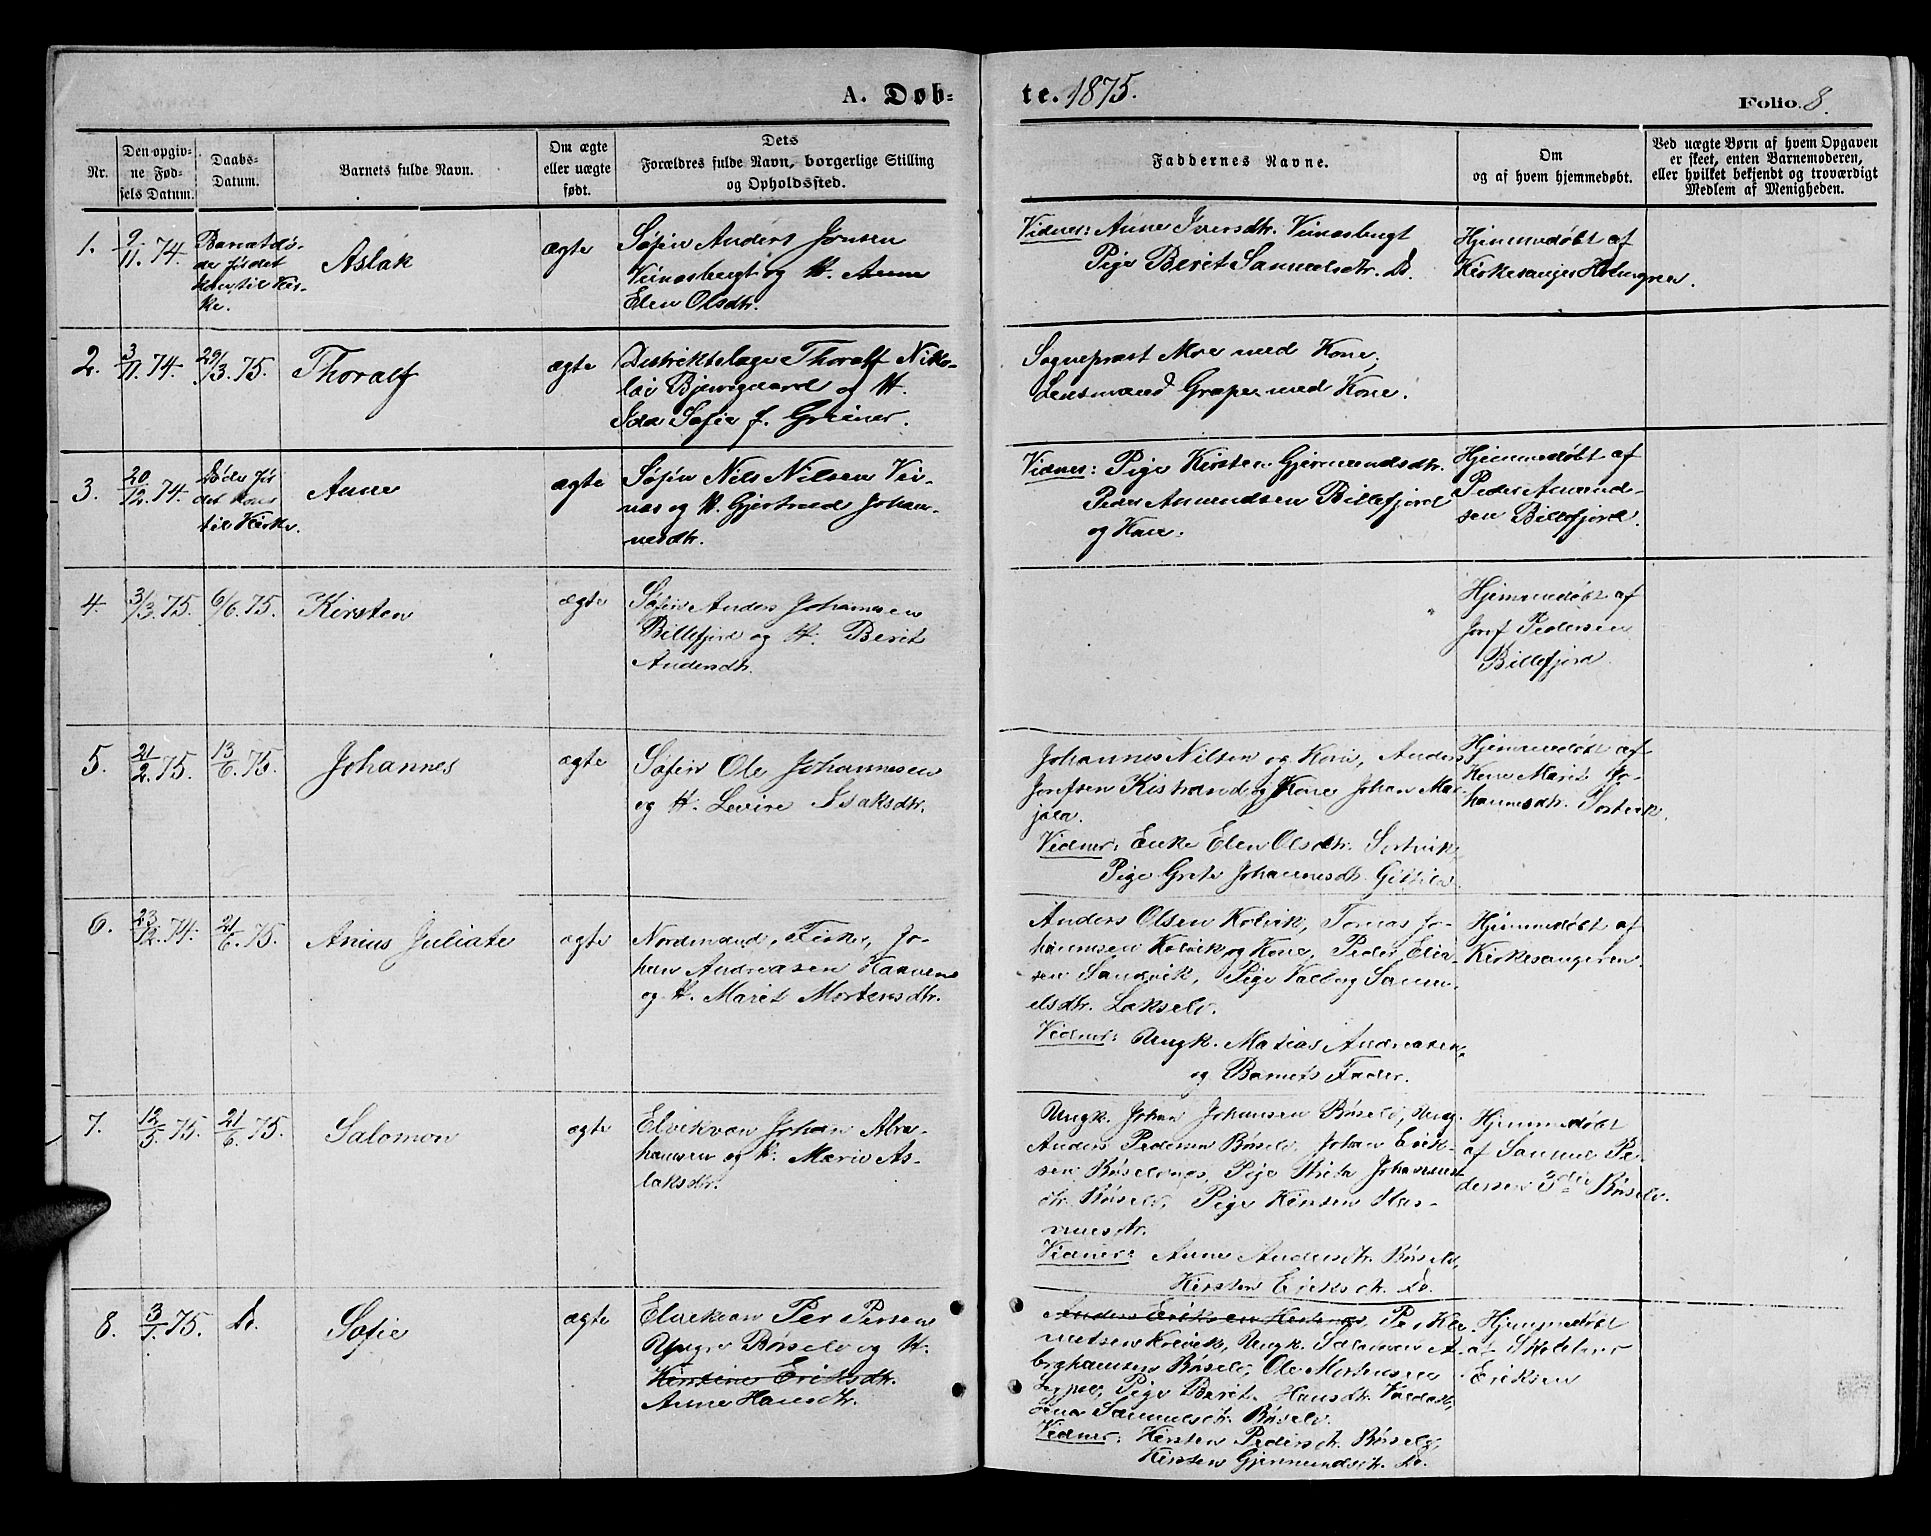 A. Døb-
te. 1875.
Folio. 8.
Nr.
Den opgiv-
ne Fød-
sels Datum.
Daabs-
Datum.
Barnets fulde Navn.
Om ægte
eller uægte
født.
Dets
Forældres fulde Navn, borgerlige Stilling
og Opholdssted.
Faddernes Navne.
Om
og af hvem hjemmedøbt.
Ved uægte Børn af hvem Opgaven
er skeet, enten Barnemoderen,
eller hvilket bekjendt og troværdigt
Medlem af Menigheden.
1.
9/11. 74.
Barnet dø-
de før det
kom til Kir-
ke.
Aslak
ægte
Søfin Anders Jonsen
og H. Anne
Elen Olsdtr.
Vidner: Anne Iversdtr.
Pige Berit Samuelsdtr. Do.
Hjemmedøbt af
Kirkesanger Holmgren.
2.
3/11. 74.
29/3. 75.
Thoralf
ægte
Distriktslæge Thoralf Niko-
lai og H.
Ida Sofie f. Greiner.
Sogneprest Moe med Kone,
Lensmand Grape med Kone.
3.
20/12. 74.
Døde før
det kom
til Kirke.
Anne
ægte
Søfin Nils Nilsen
og H. Gjertrud Johan-
nesdtr.
Vidner: Pige Kirsten Gjermundsdtr.
Peder Amundsen Billefjord
og Kone.
Hjemmedøbt af
Peder Amund-
sen Billefjord.
4.
31/3. 75.
6/6. 75.
Kirsten
ægte
Søfin Anders Johannesen
Billefjord og H. Berit
Andersdtr.
Hjemmedøbt af
Josef Pedersen
Billefjord.
5.
21/2. 75.
13/6. 75.
Johannes
ægte
Søfin Ole Johannesen
og H. Levine Isaksdtr.
Johannes Nilsen og Kone, Anders
Josefsen Kistrand og Kone Johan Mar-
jala.
Vidner: Enke Elen Olsdtr. Sortvik,
Pige Grete Johannesdtr.
Hjemmedøbt af
Kone Marit Jo-
hannesdtr. Sortvik.
6.
23/12. 74.
21/6. 75.
Anius Juliate
ægte
Nordmand, Fisker, Jo-
han Andreasen
og H. Maret Mortensdtr.
Anders Olsen Kolvik, Tomas Jo-
hannesen Kolvik og Kone, Peder Elia-
sen Sandvik, Pige Valborg Samu-
elsdtr. Lakselv.
Vidner: Ungk. Matias Andreasen,
og Barnets Fader.
Hjemmedøbt af
Kirkesangeren.
7.
12/5. 75.
21/6. 75.
Salomon
ægte
Elvekvæn Johan Abra-
hamsen og H. Marie As-
laksdtr.
Ungk. Johan Johansen Børselv, Ung.
Anders Pedersen Børselv, Johan Erik-
sen Børselvnes, Pige Johannes-
dtr. Børselv, Pige Kirsten Has-
Vidner: Anne Andersdtr. Børselv,
Kirsten Eriksdtr. Do.
Hjemmedøbt
af Samuel Pe-
dersen 3die Børselv.
8.
3/1. 75.
Do.
Sofie
ægte
Elvekvæn Per Persen
Yngre Børselv og H.
Kirstine Eriksdtr.
Anne Hansdtr.
Anders Eriksen Per
Kolvik, Ungk. Salomon A-
brahamsen Børselv, Ole Mortensen
Pige Berit Hansdtr.
Lena Samuelsdtr. Børselv.
Vidner: Kirsten Pedersdtr. Børselv,
Kirsten Gjermundsdtr. Do.
Hjemmedøbt
af Skolelærer
Eriksen